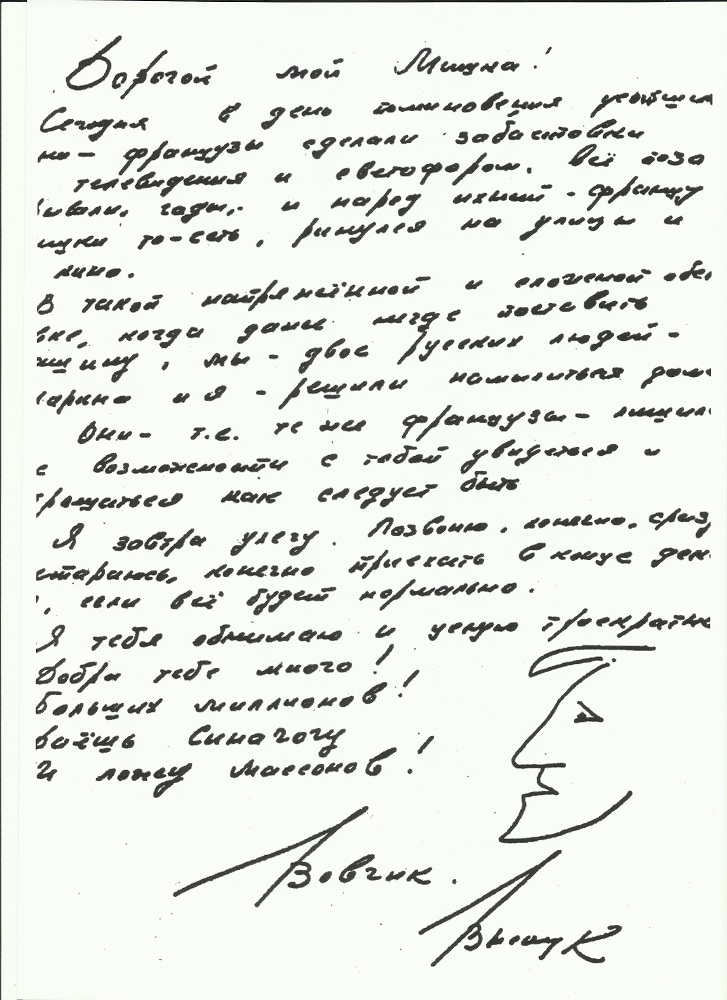 Дорогой мой Мишка!
Сегодня в день поминовения усопших
но — французы сделали забастовки
телевидения и светофором. Всё поза
ывали, гады, и народ ихний - францу
ишки то-есть, ринулся на улицы и
кино.
В такой напряжённой и сложной обс
вке, когда даже негде поставить
ашину, мы — двое русских людей —
арина и я — решили намылиться дом
Они — т.е. те же французы — лишил
с возможности с тобой увидеться и
прощаться как следует быть
Я завтра улечу. Позвоню, конечно, сраз
стараюсь, конечно приехать в конце дек
, если всё будет нормально.
Я тебя обнимаю и целую троекратн
Добра тебе много!
больших миллионов!
даёшь Синагогу
И ложу Массонов!
Вовчик.
Высоцк